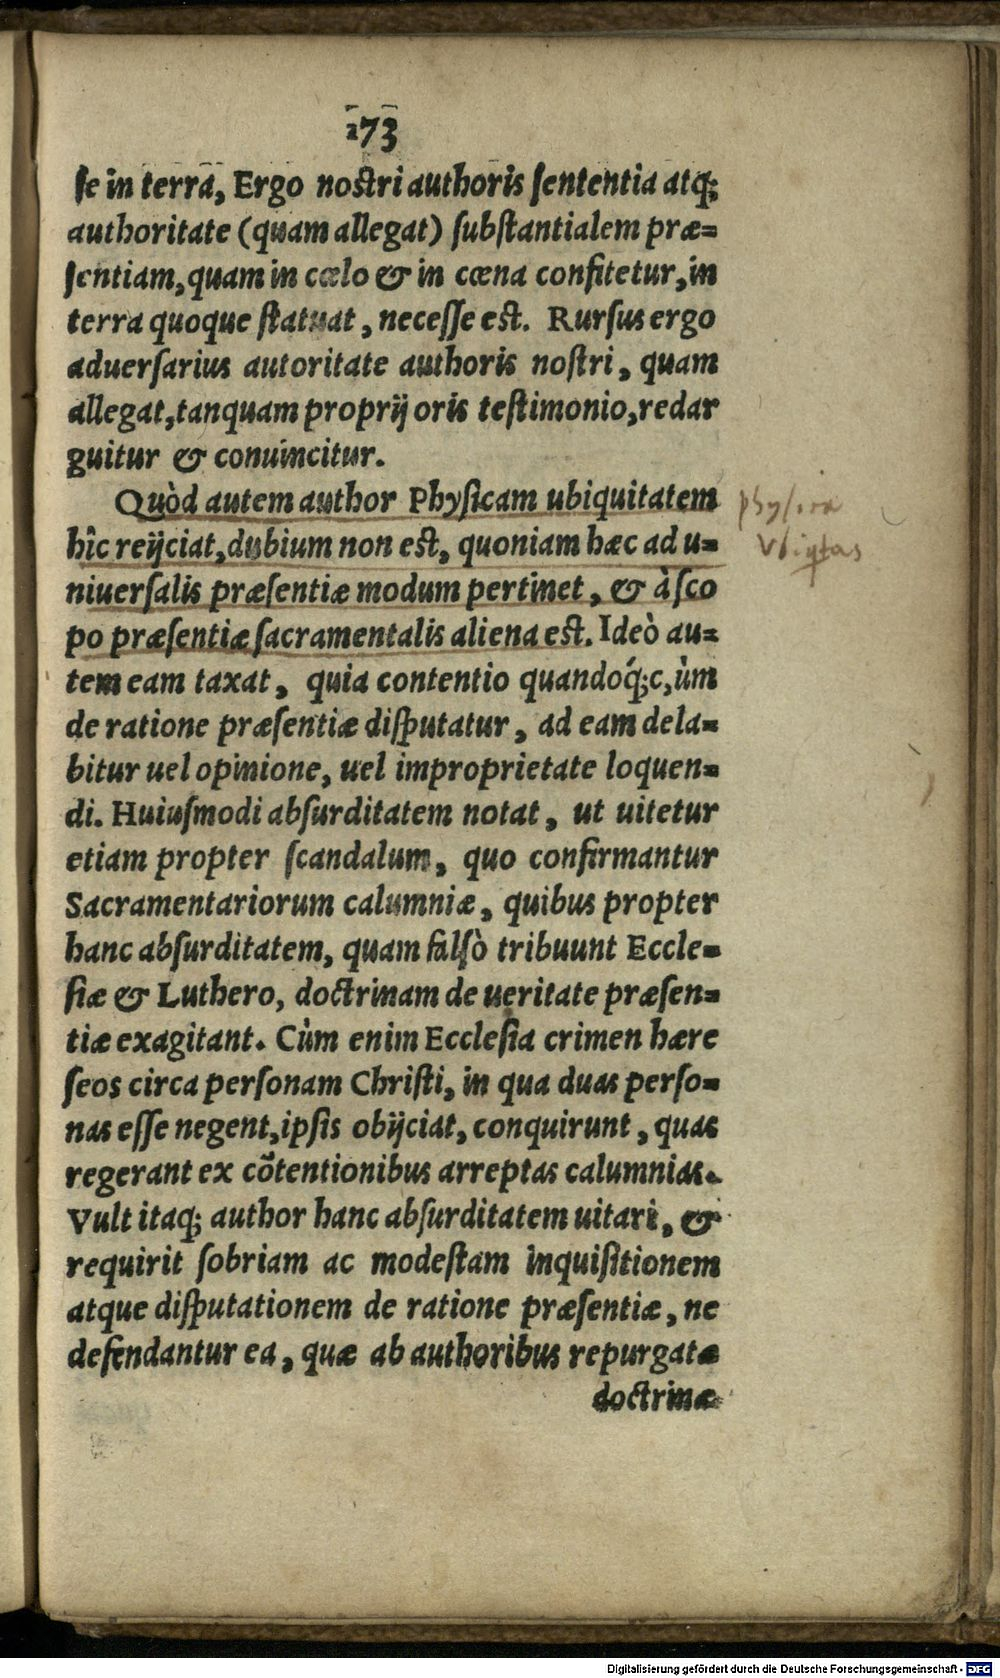 173
se in terra, Ergo nostri authoris sententia atq;
authoritate (quam allegat) substantialem præ=
sentiam, quam in cœlo & in cœna confitetur, in
terra quoque statuat, necesse est. Rursus ergo
aduersarius autoritate authoris nostri, quam
allegat, tanquam proprij oris testimonio, redar
guitur & conuincitur.
Quòd autem author Physicam ubiquitatem
hîc reijciat, dubium non est, quoniam hæc ad u=
niuersalis præsentiæ modum pertinet, & à sco
po præsentiæ sacramentalis aliena est. Ideò au=
tem eam taxat, quia contentio quandoq́;c,ùm
de ratione præsentiæ disputatur, ad eam dela=
bitur uel opinione, uel improprietate loquen=
di. Huiusmodi absurditatem notat, ut uitetur
etiam propter scandalum, quo confirmantur
Sacramentariorum calumniæ, quibus propter
hanc absurditatem, quam falsò tribuunt Eccle=
siæ & Luthero, doctrinam de ueritate præsen=
tiæ exagitant. Cùm enim Ecclesia crimen hære
seos circa personam Christi, in qua duas perso=
nas esse negent, ipsis obijciat, conquirunt, quas
regerant ex cõtentionibus arreptas calumnias.
Vult itaq; author hanc absurditatem uitari, &
requirit sobriam ac modestam inquisitionem
atque disputationem de ratione præsentiæ, ne
defendantur ea, quæ ab authoribus repurgatæ
doctrinæ
physica
Vbiqtas
Digitalisierung gefördert durch die Deutsche Forschungsgemeinschaft - DFG